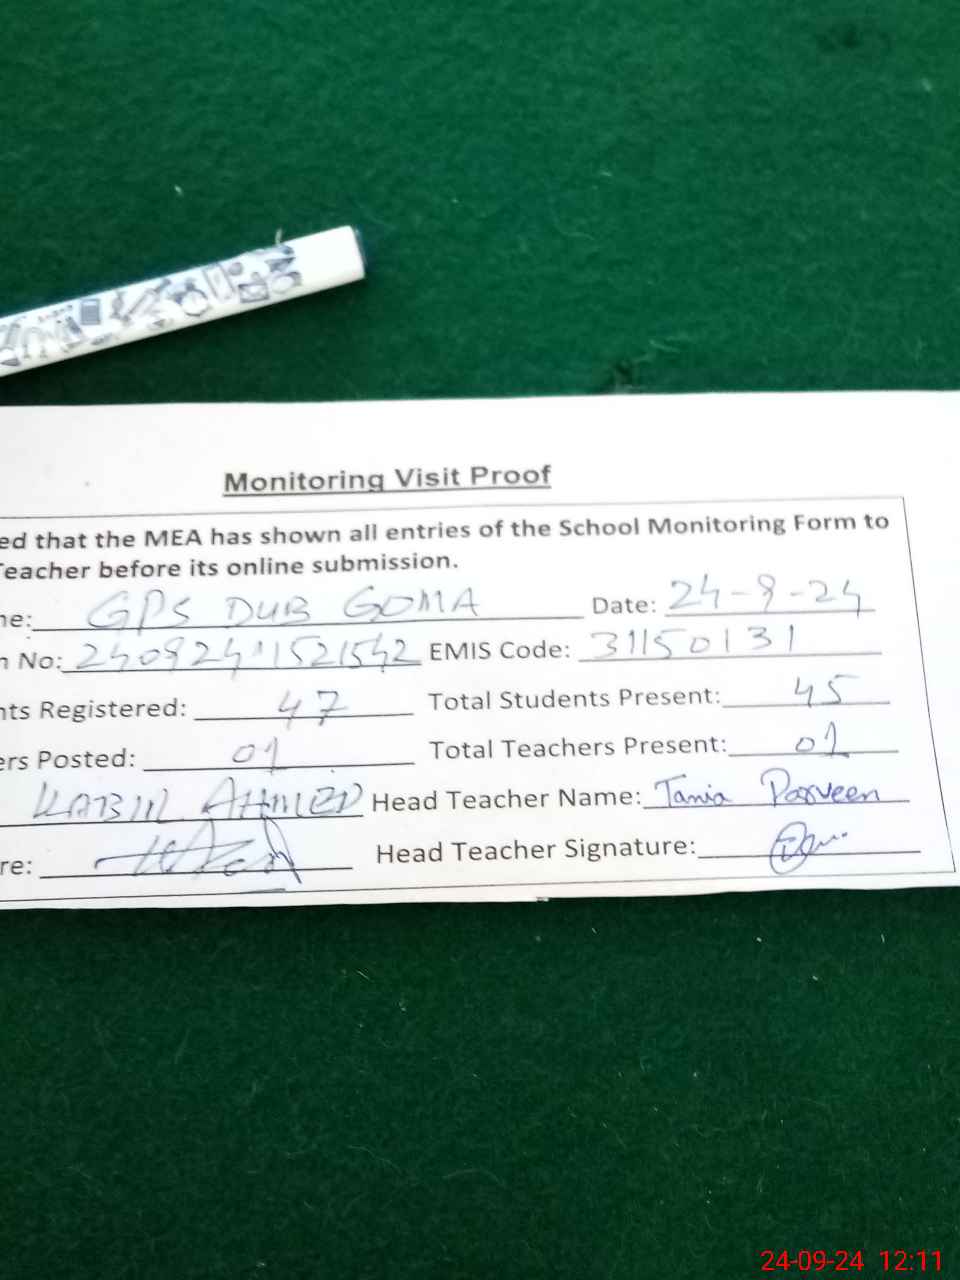 Monitoring Visit Proof
ed that the MEA has shown all entries of the School Monitoring Form to
Teacher before its online submission.
ne: GPS DUB GOMA Date: 24-9-24
n No: 24092411521542 EMIS Code: 31150131
nts Registered: 47 Total Students Present: 45
ers Posted: 01 Total Teachers Present: 01
KABIR AHMED Head Teacher Name: Tania Parveen
re: Head Teacher Signature:
24-09-24 12:11